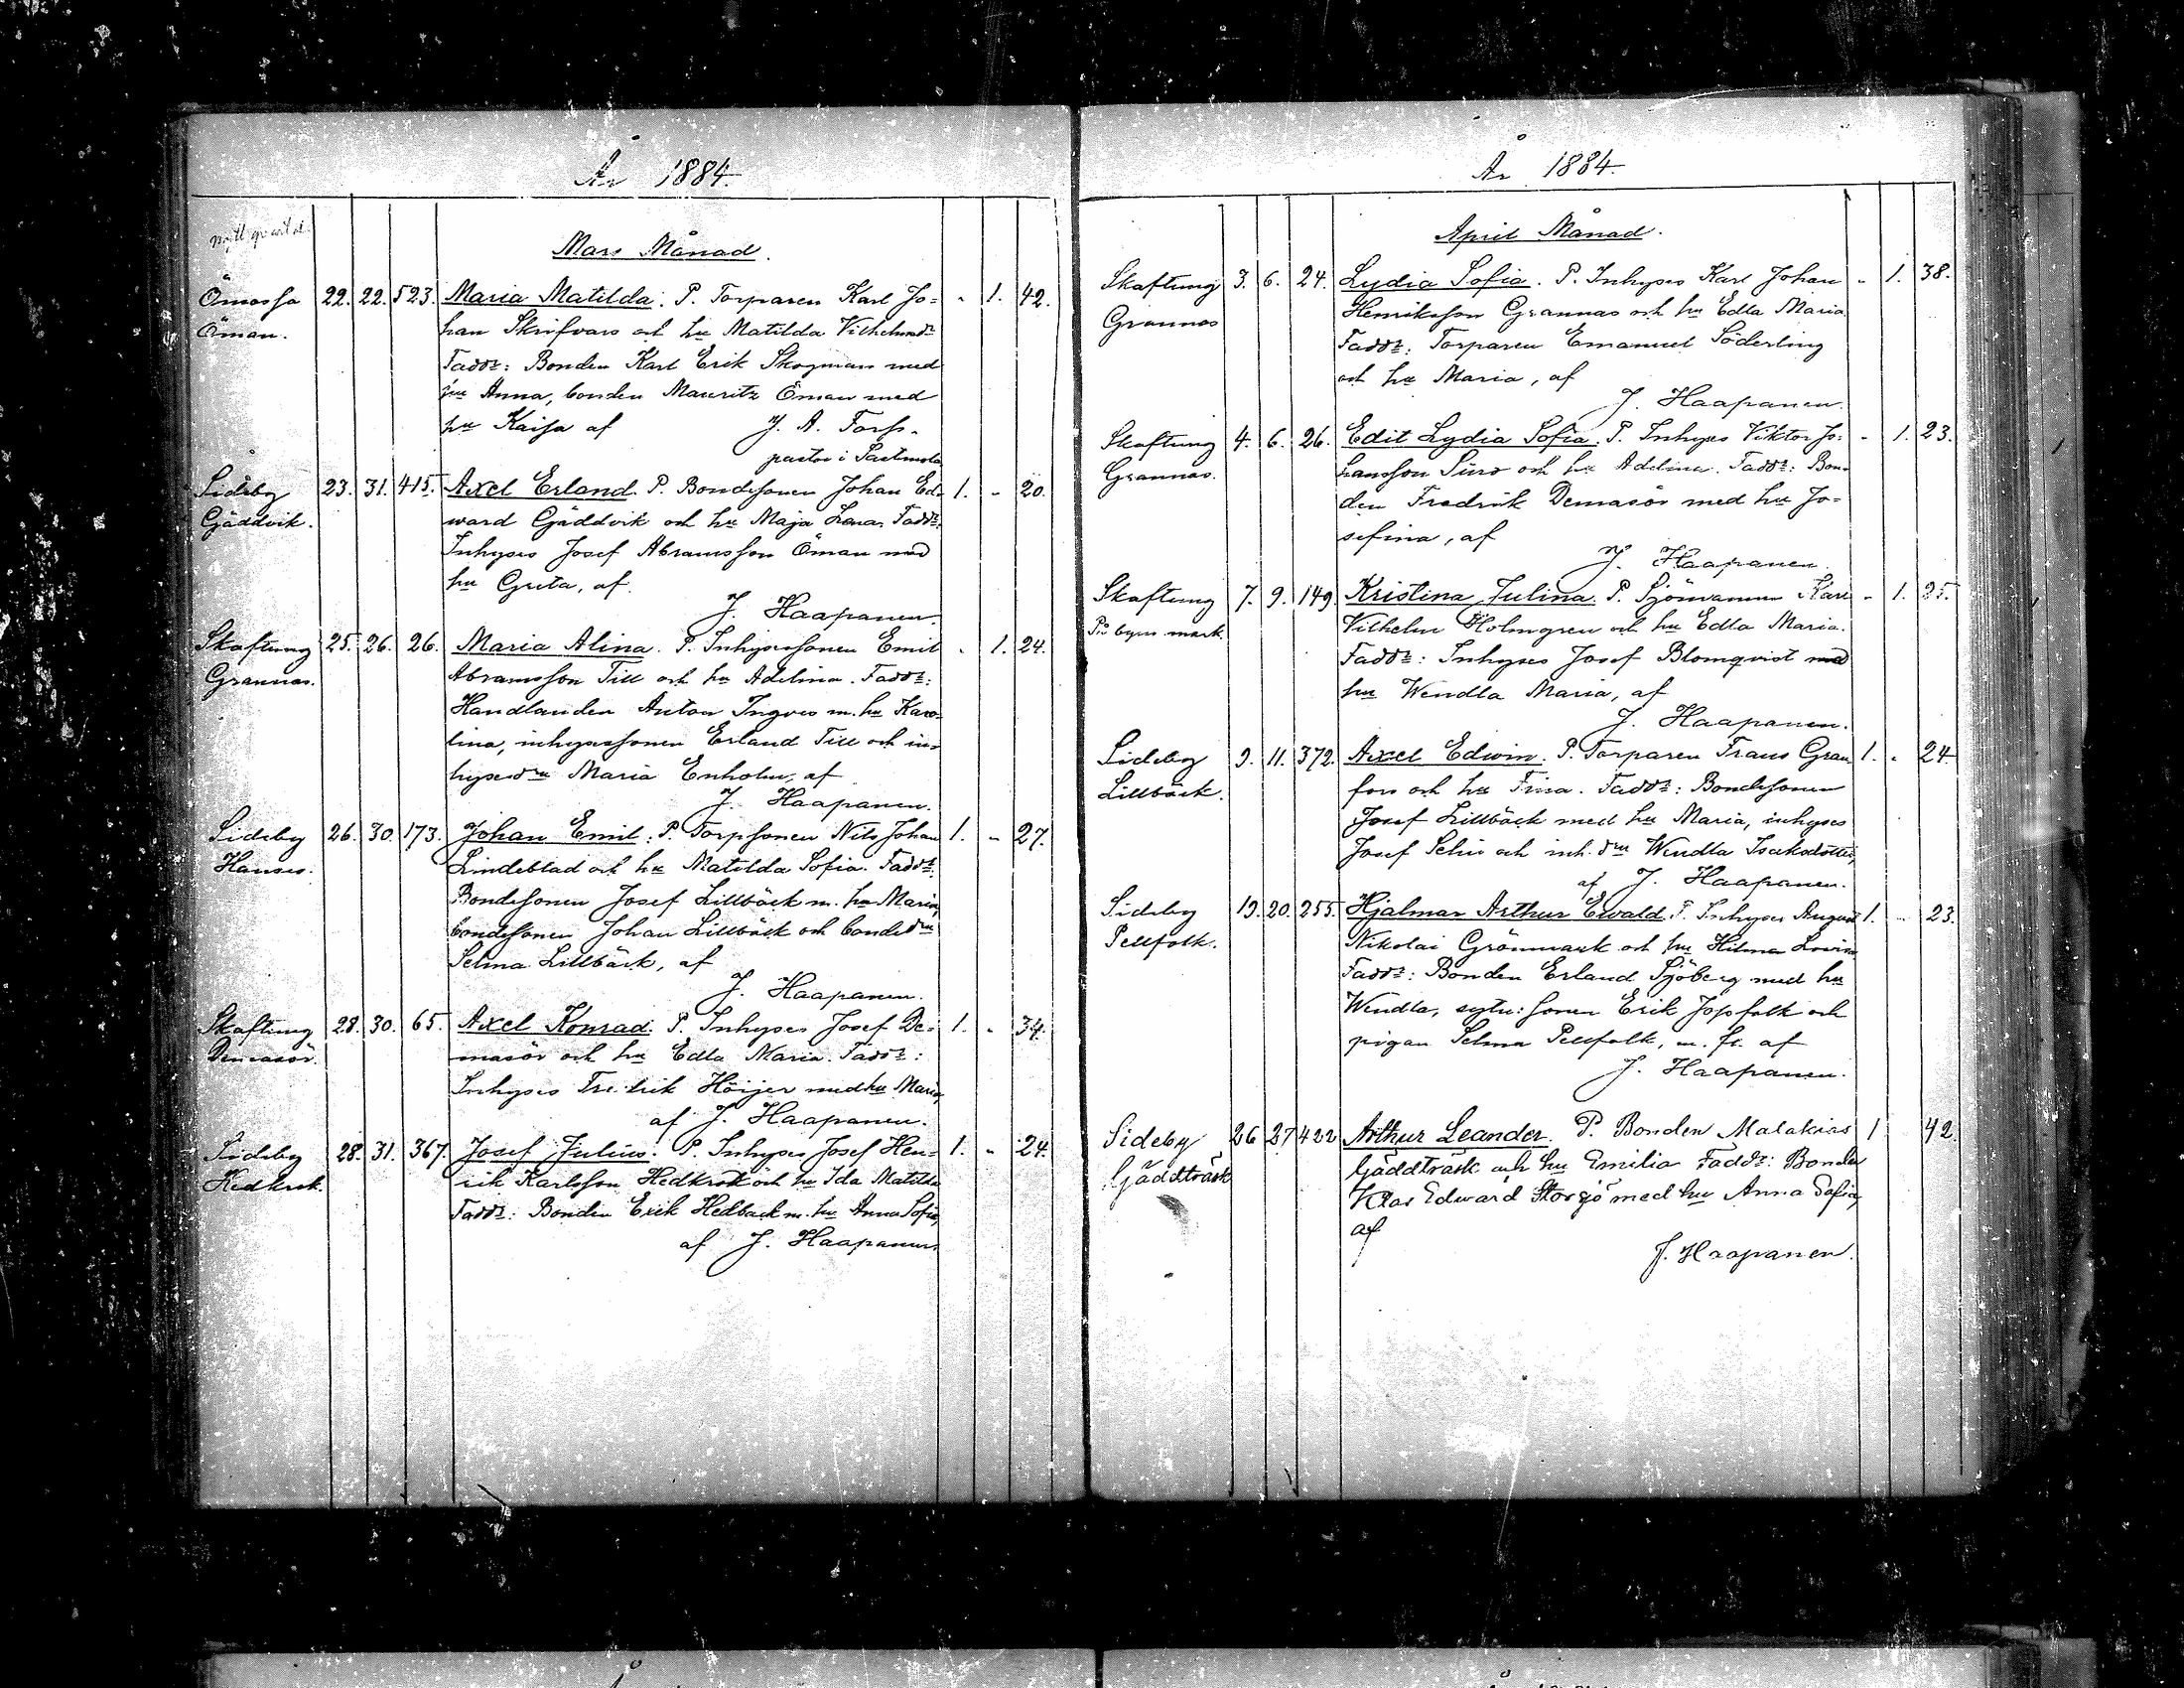 År 1884.
Mars Månad.
Ömossa 22. 22. 523. Maria Matilda. P. Torparen Karl Jo- - 1. 42.
Öman. han Skrifvars och hu Matilda Vilhelmsdr
Faddr: Bonden Karl Erik Skogman med
hu Anna, bonden Mauritz Öman med
hu Kajsa af J. A. Forss.
pastor i Sastmola
Sideby 23. 31. 415. Axel Erland. P. Bondesonen Johan Ed- 1. - 20.
Gäddvik. ward Gäddvik och hu Maja Lena. Faddr:
Inhyses Josef Abramsson Öman med
hu Greta, af
J. Haapanen.
Skaftung 25. 26. 26. Maria Alina. P. Inhysessonen Emil - 1. 24.
Grannas. Abramsson Till och hu Adelina. Faddr:
Handlanden Anton Ingves m. hu Karo-
lina, inhysessonen Erland Till och in-
hysesdrn Maria Enholm, af
J. Haapanen.
Sideby 26. 30. 173. Johan Emil. P. Torpsonen Nils Johan 1. - 27.
Hanses. Lindeblad och hu Matilda Sofia. Faddr:
Bondesonen Josef Lillbäck m. hu Maria,
bondesonen Johan Lillbäck och bondedrn
Selma Lillbäck, af
J. Haapanen.
Skaftung 28. 30. 65. Axel Konrad. P. Inhyses Josef De- 1. - 34.
Demasör. masör och hu Edla Maria. Faddr:
Inhyses Fredrik Höijer med hu Maria,
af J. Haapanen.
Sideby 28. 31. 367. Josef Julius. P. Inhyses Josef Hen- 1. - 24.
Hedkrok. rik Karlsson Hedkrok och hu Ida Matilda
Faddr: Bonden Erik Hedback m. hu Anna Sofia,
af J. Haapanen.
År 1884.
April Månad.
Skaftung 3. 6. 24. Lydia Sofia. P. Inhyses Karl Johan - 1. 38.
Grannas Henriksson Grannas och hu Edla Maria
Faddr: Torparen Emanuel Söderling
och hu Maria, af
J. Haapanen.
Skaftung 4. 6. 26. Edit Lydia Sofia. P. Inhyses Viktor Jo- - 1. 23.
Grannas. hansson Sürs och hu Adelina. Faddr: Bon-
den Fredrik Demasör med hu Jo-
sefina, af
J. Haapanen.
Skaftung 7. 9. 149. Kristina Julina. P. Sjömannen Karl - 1. 25.
På byns mark. Vilhelm Holmgren och hu Edla Maria.
Faddr: Inhyses Josef Blomqvist med
hu Wendla Maria, af
J. Haapanen.
Sideby 9. 11. 372. Axel Edwin. P. Torparen Frans Gran 1. - 24.
Lillbäck. fors och hu Fina. Faddr: Bondesonen
Josef Lillbäck med hu Maria, inhyses
Josef Selin och inh. drn Wendla Isaksdotter,
af J. Haapanen.
Sideby 19. 20. 255. Hjalmar Arthur Ewald. P. Inhyses August 1. - 23.
Pellfolk. Nikolai Grönmark och hu Hilma Lovisa
Faddr: Bonden Erland Sjöberg med hu
Wendla, sytn: sonen Erik Joppfolk och
pigan Selma Pellfolk, m. fl. af
J. Haapanen.
Sideby 26 27 422 Arthur Leander. P. Bonden Malakias 1 42.
Gäddträsk Gäddträsk och hu Emilia Faddr: Bonden
Klas Edward Storsjö med hu Anna Sofia,
af
J. Haapanen.